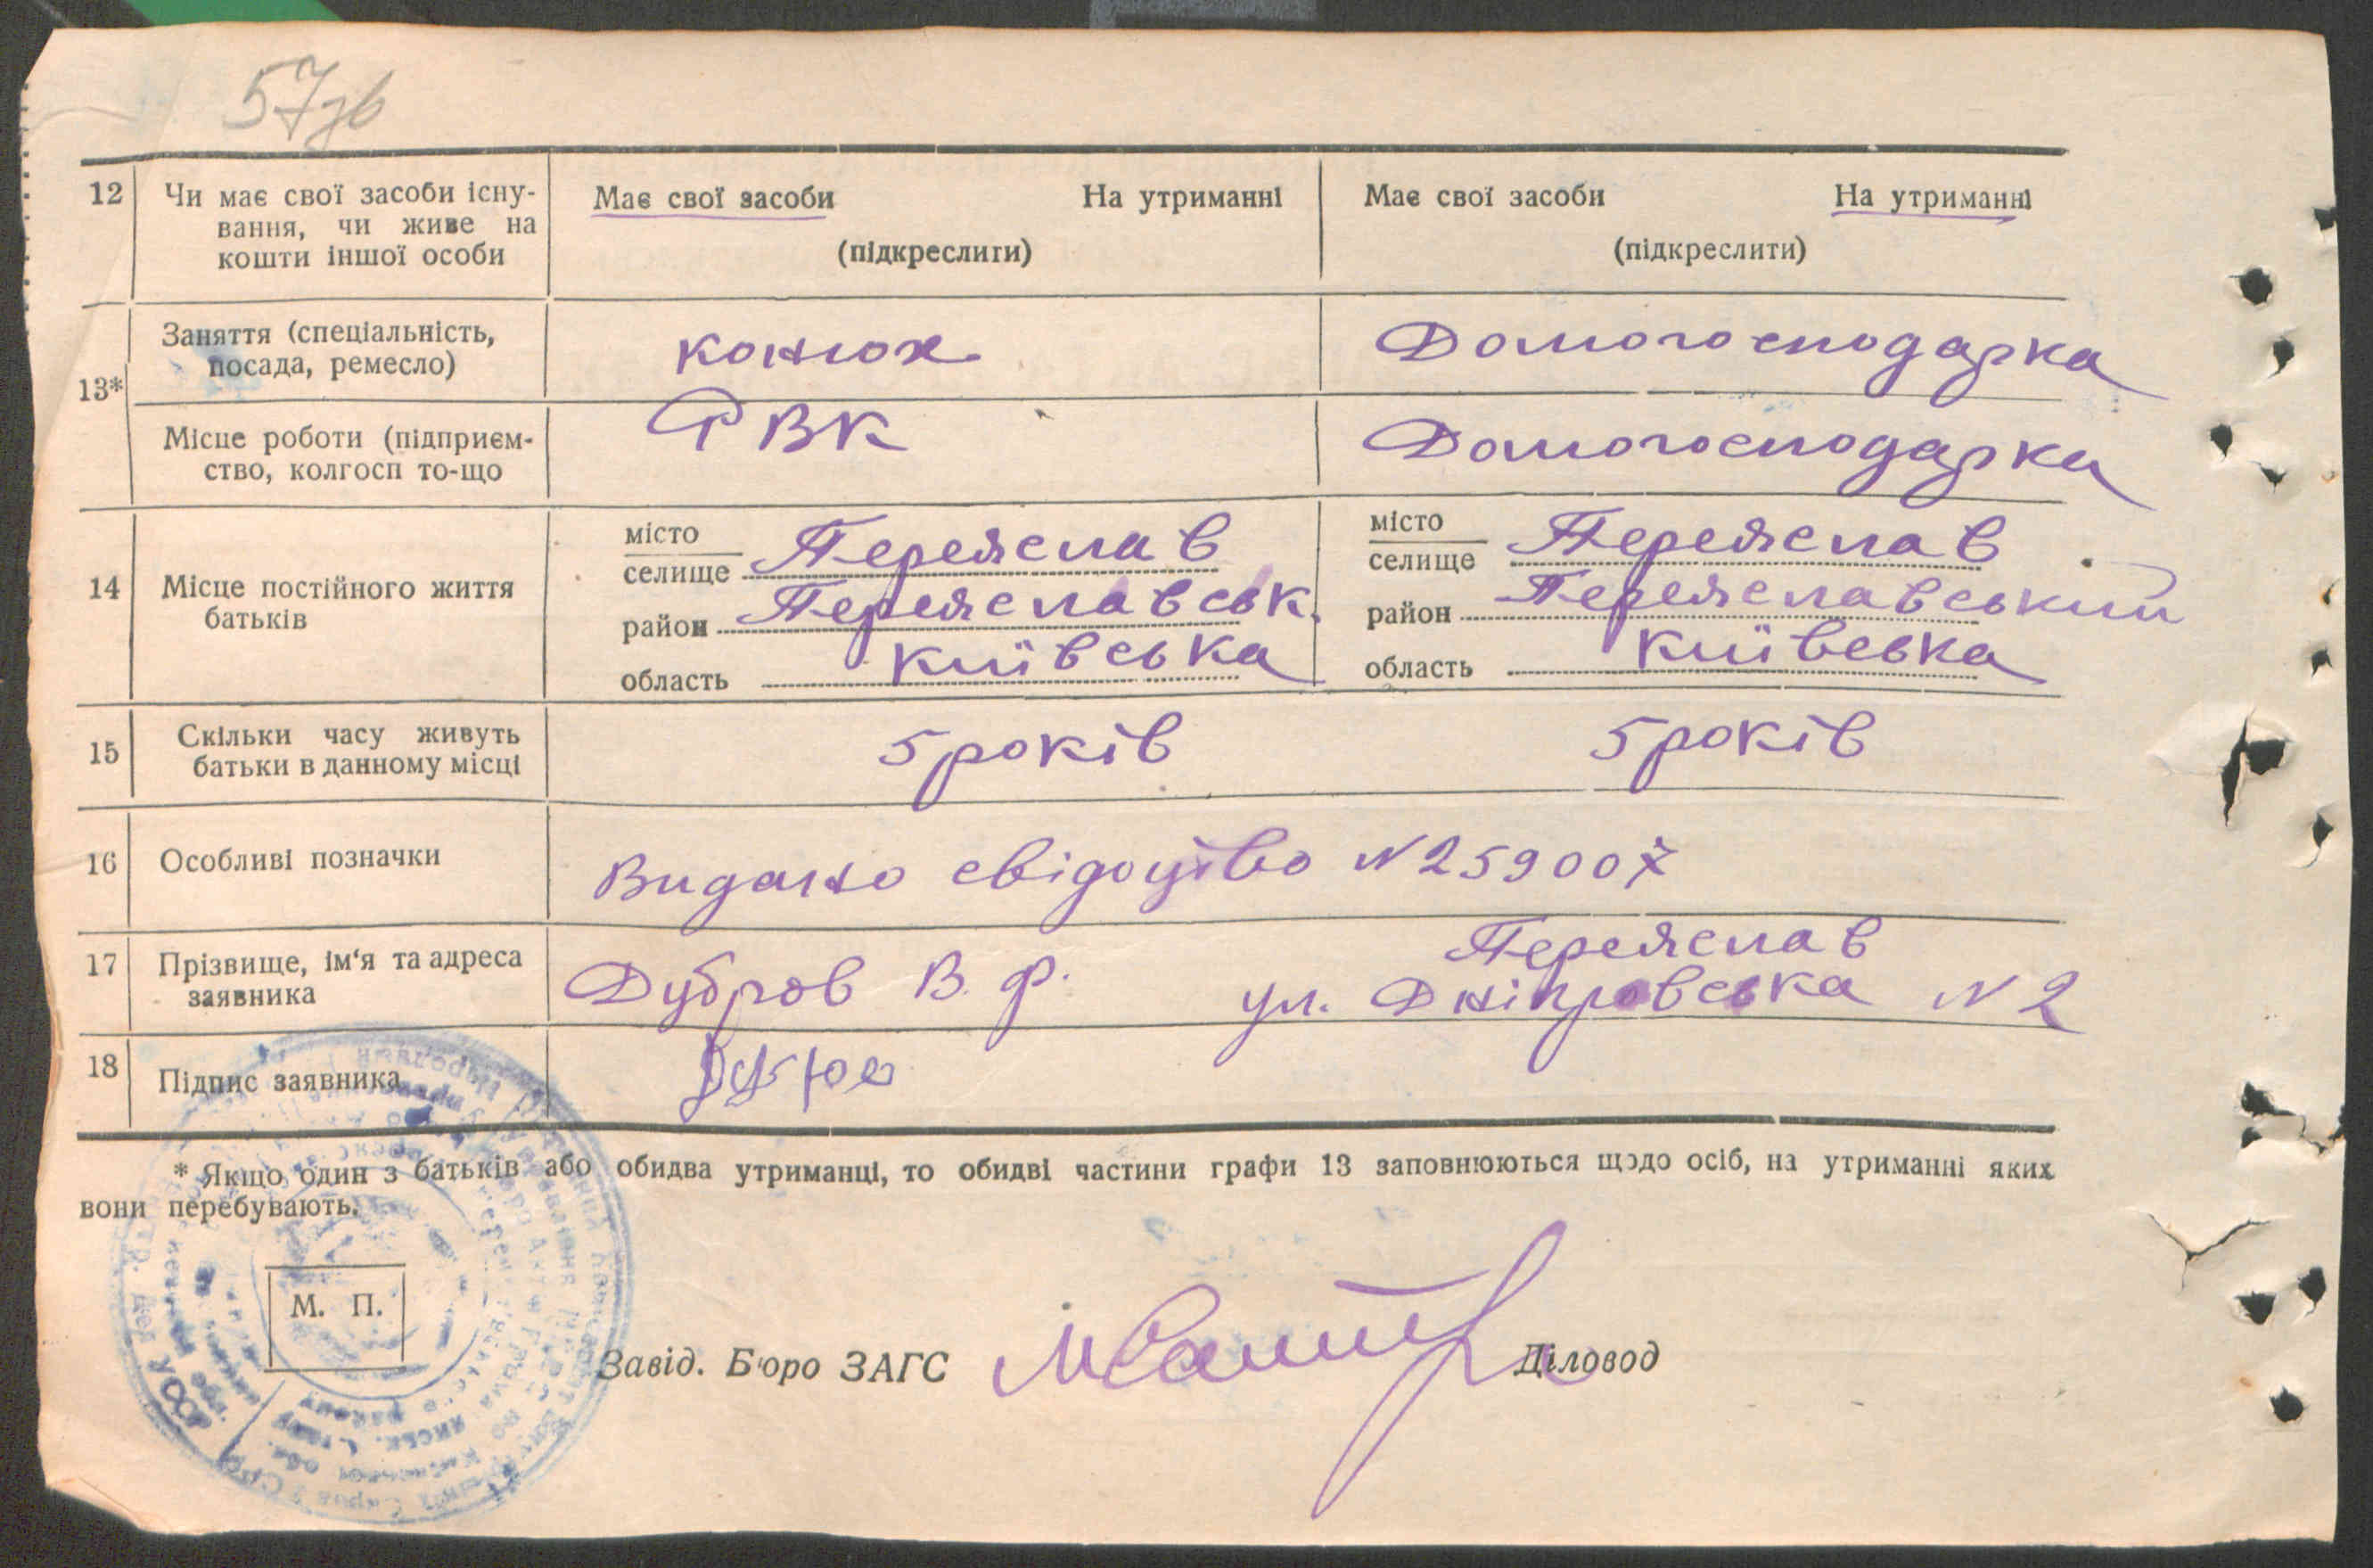 57зв
12 Чи має свої засоби існу-
вання, чи живе на
кошти іншої особи
Має свої засоби На утриманні
(підкреслити)
Має свої засоби На утриманні
(підкреслити)
13*
Заняття (спеціальність,
посада, ремесло)
конюх
Домогосподарка
Місце роботи (підприєм-
ство, колгосп то-що
РВК
Домогосподарка
14 Місце постійного життя
батьків
місто
селище Переяслав
район Переяславськ.
область Київська
місто
селище Переяслав
район Переяславський
область Київська
15 Скільки часу живуть
батьки в данному місці
5 років
5 років
16 Особливі позначки
Видано свідоцтво N 259007
17 Прізвище, ім‘я та адреса
заявника
Дубров В. Ф. Переяслав
ул. Дніпровська N 2
18 Підпис заявника
* Якщо один з батьків або обидва утриманці, то обидві частини графи 13 заповнюються щодо осіб, на утриманні яких
вони перебувають.
М. П.
Завід. Б‘юро ЗАГС
Діловод
УССР